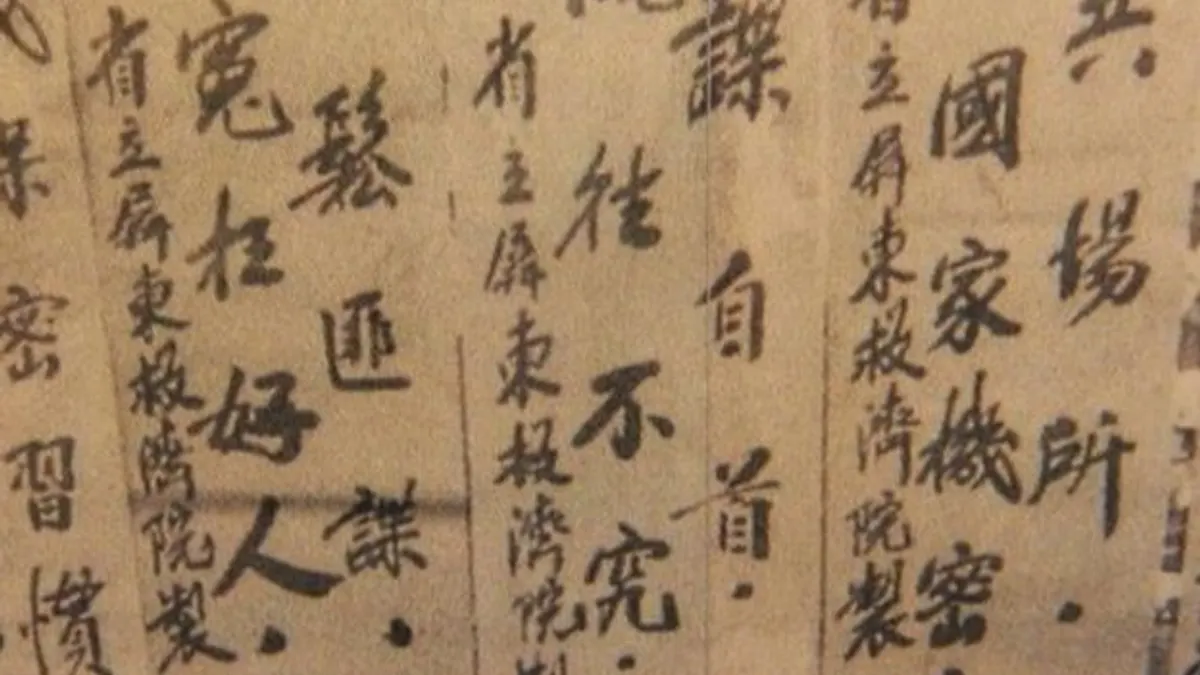 共場所.
國家機密.
省立屏東救濟院製
諜自首.
往不究.
省立屏東救濟院製
鬆匪諜.
冤枉好人.
省立屏東救濟院製
保密習慣